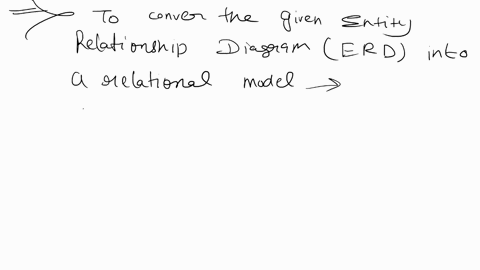 To conver the given Entity
Relationship Diagram (ERD) into
a relational model →